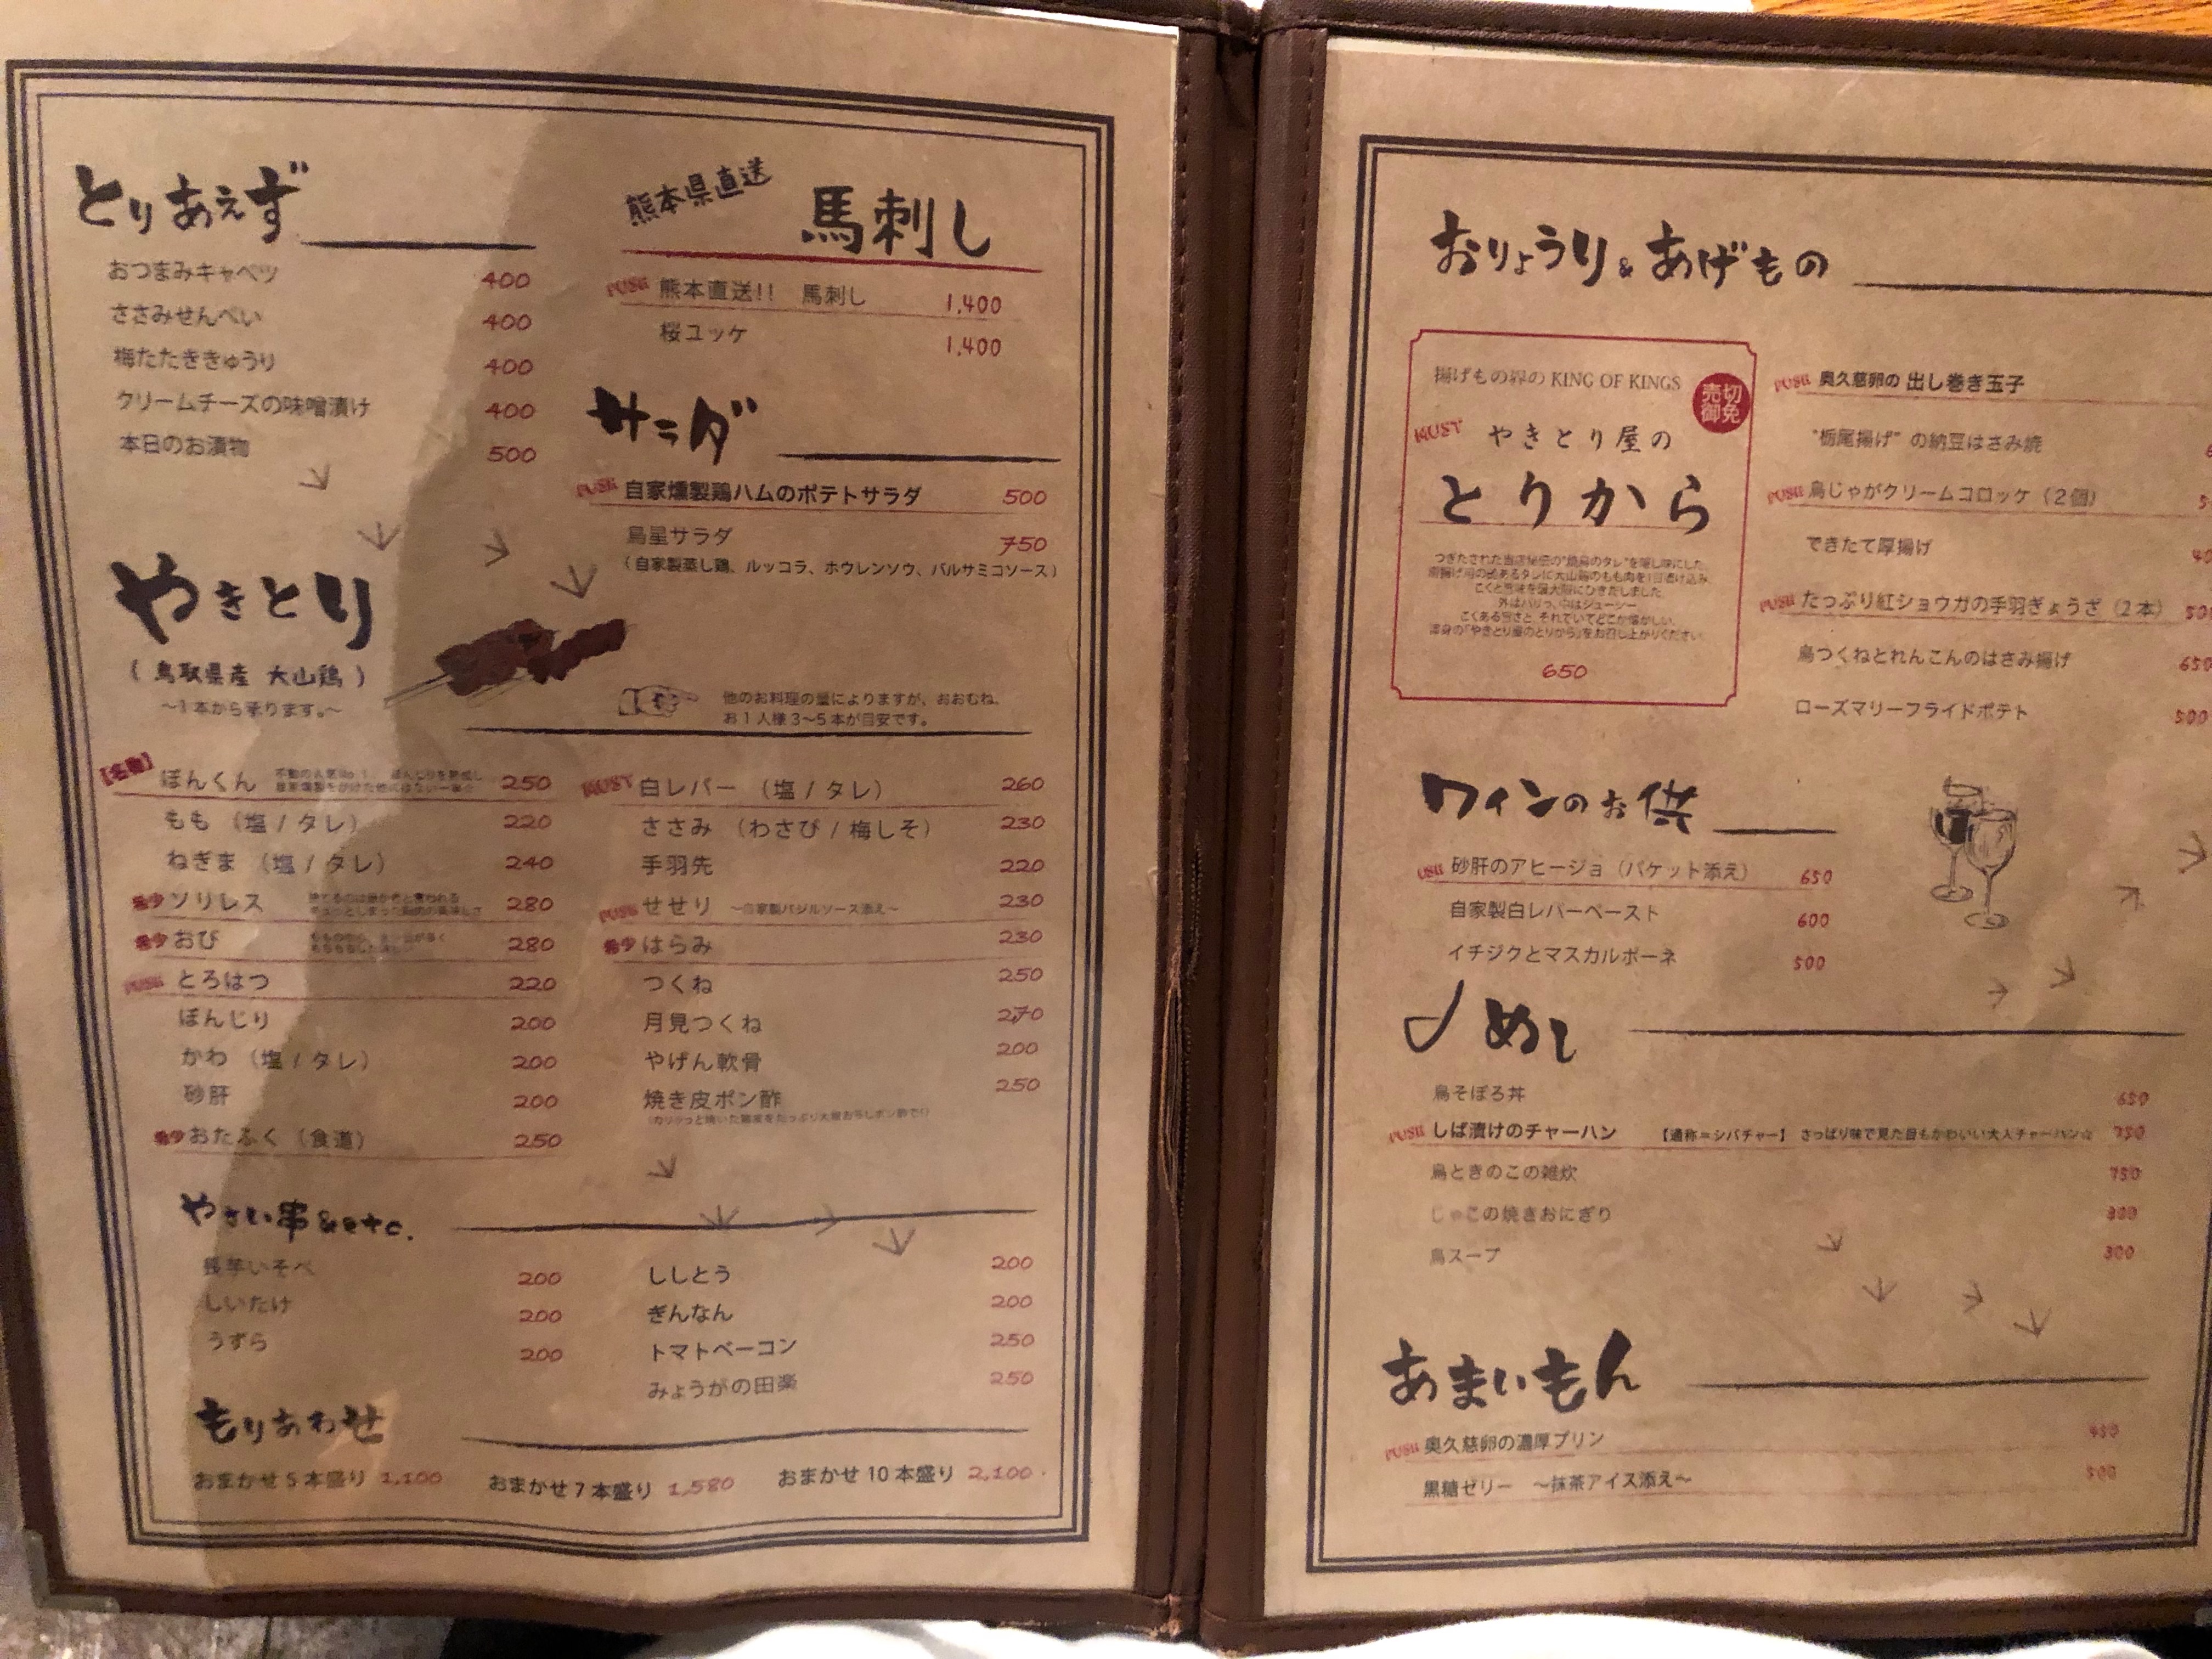 とりあえず
おつまみキャベツ 400
ささみせんべい 400
梅たたききゅうり 400
クリームチーズの味噌漬け 400
本日のお漬物 500
熊本県直送 馬刺し
PUSH 熊本直送!! 馬刺し 1,400
桜ユッケ 1,400
サラダ
PUSH 自家燻製鶏ハムのポテトサラダ 500
鳥星サラダ 750
（自家製蒸し鶏、ルッコラ、ホウレンソウ、バルサミコソース）
やきとり
（鳥取県産 大山鶏）
〜1本から承ります。〜
他のお料理の量によりますが、おおむね、
お1人様3〜5本が目安です。
【名物】ぼんくん 250
もも （塩 / タレ） 220
ねぎま （塩 / タレ） 240
希少 ソリレス 280
希少 おび 280
PUSH とろはつ 220
ぼんじり 200
かわ （塩 / タレ） 200
砂肝 200
希少 おたふく（食道） 250
MUST 白レバー （塩 / タレ） 260
ささみ （わさび / 梅しそ） 230
手羽先 220
PUSH せせり 〜自家製バジルソース添え〜 230
希少 はらみ 230
つくね 250
月見つくね 270
やげん軟骨 200
焼き皮ポン酢 250
やさい串&etc.
長芋いそべ 200
しいたけ 200
うずら 200
ししとう 200
ぎんなん 200
トマトベーコン 250
みょうがの田楽 250
もりあわせ
おまかせ5本盛り 1,100 おまかせ7本盛り 1,580 おまかせ10本盛り 2,100
おりょうり&あげもの
揚げもの界の KING OF KINGS
売切御免
MUST やきとり屋の
とりから
つぎたされた当店秘伝の"焼鳥のタレ"を隠し味にした、
こくと旨味を最大限にひきだしました。
外はパリっ、中はジューシー
こくある旨さと、それでいてどこか懐かしい、
渾身の「やきとり屋のとりから」をお召し上がりください。
650
PUSH 奥久慈卵の 出し巻き玉子
"栃尾揚げ" の納豆はさみ焼
PUSH 鳥じゃがクリームコロッケ（2個）
できたて厚揚げ
PUSH たっぷり紅ショウガの手羽ぎょうざ（2本） 500
鳥つくねとれんこんのはさみ揚げ 650
ローズマリーフライドポテト 500
ワインのお供
PUSH 砂肝のアヒージョ（バケット添え） 650
自家製白レバーペースト 600
イチジクとマスカルポーネ 500
〆めし
鳥そぼろ丼 650
PUSH しば漬けのチャーハン 【通称＝シバチャー】 さっぱり味で見た目もかわいい大人チャーハン☆ 750
鳥ときのこの雑炊 750
じゃこの焼きおにぎり 300
鳥スープ 300
あまいもん
PUSH 奥久慈卵の濃厚プリン 450
黒糖ゼリー 〜抹茶アイス添え〜 500